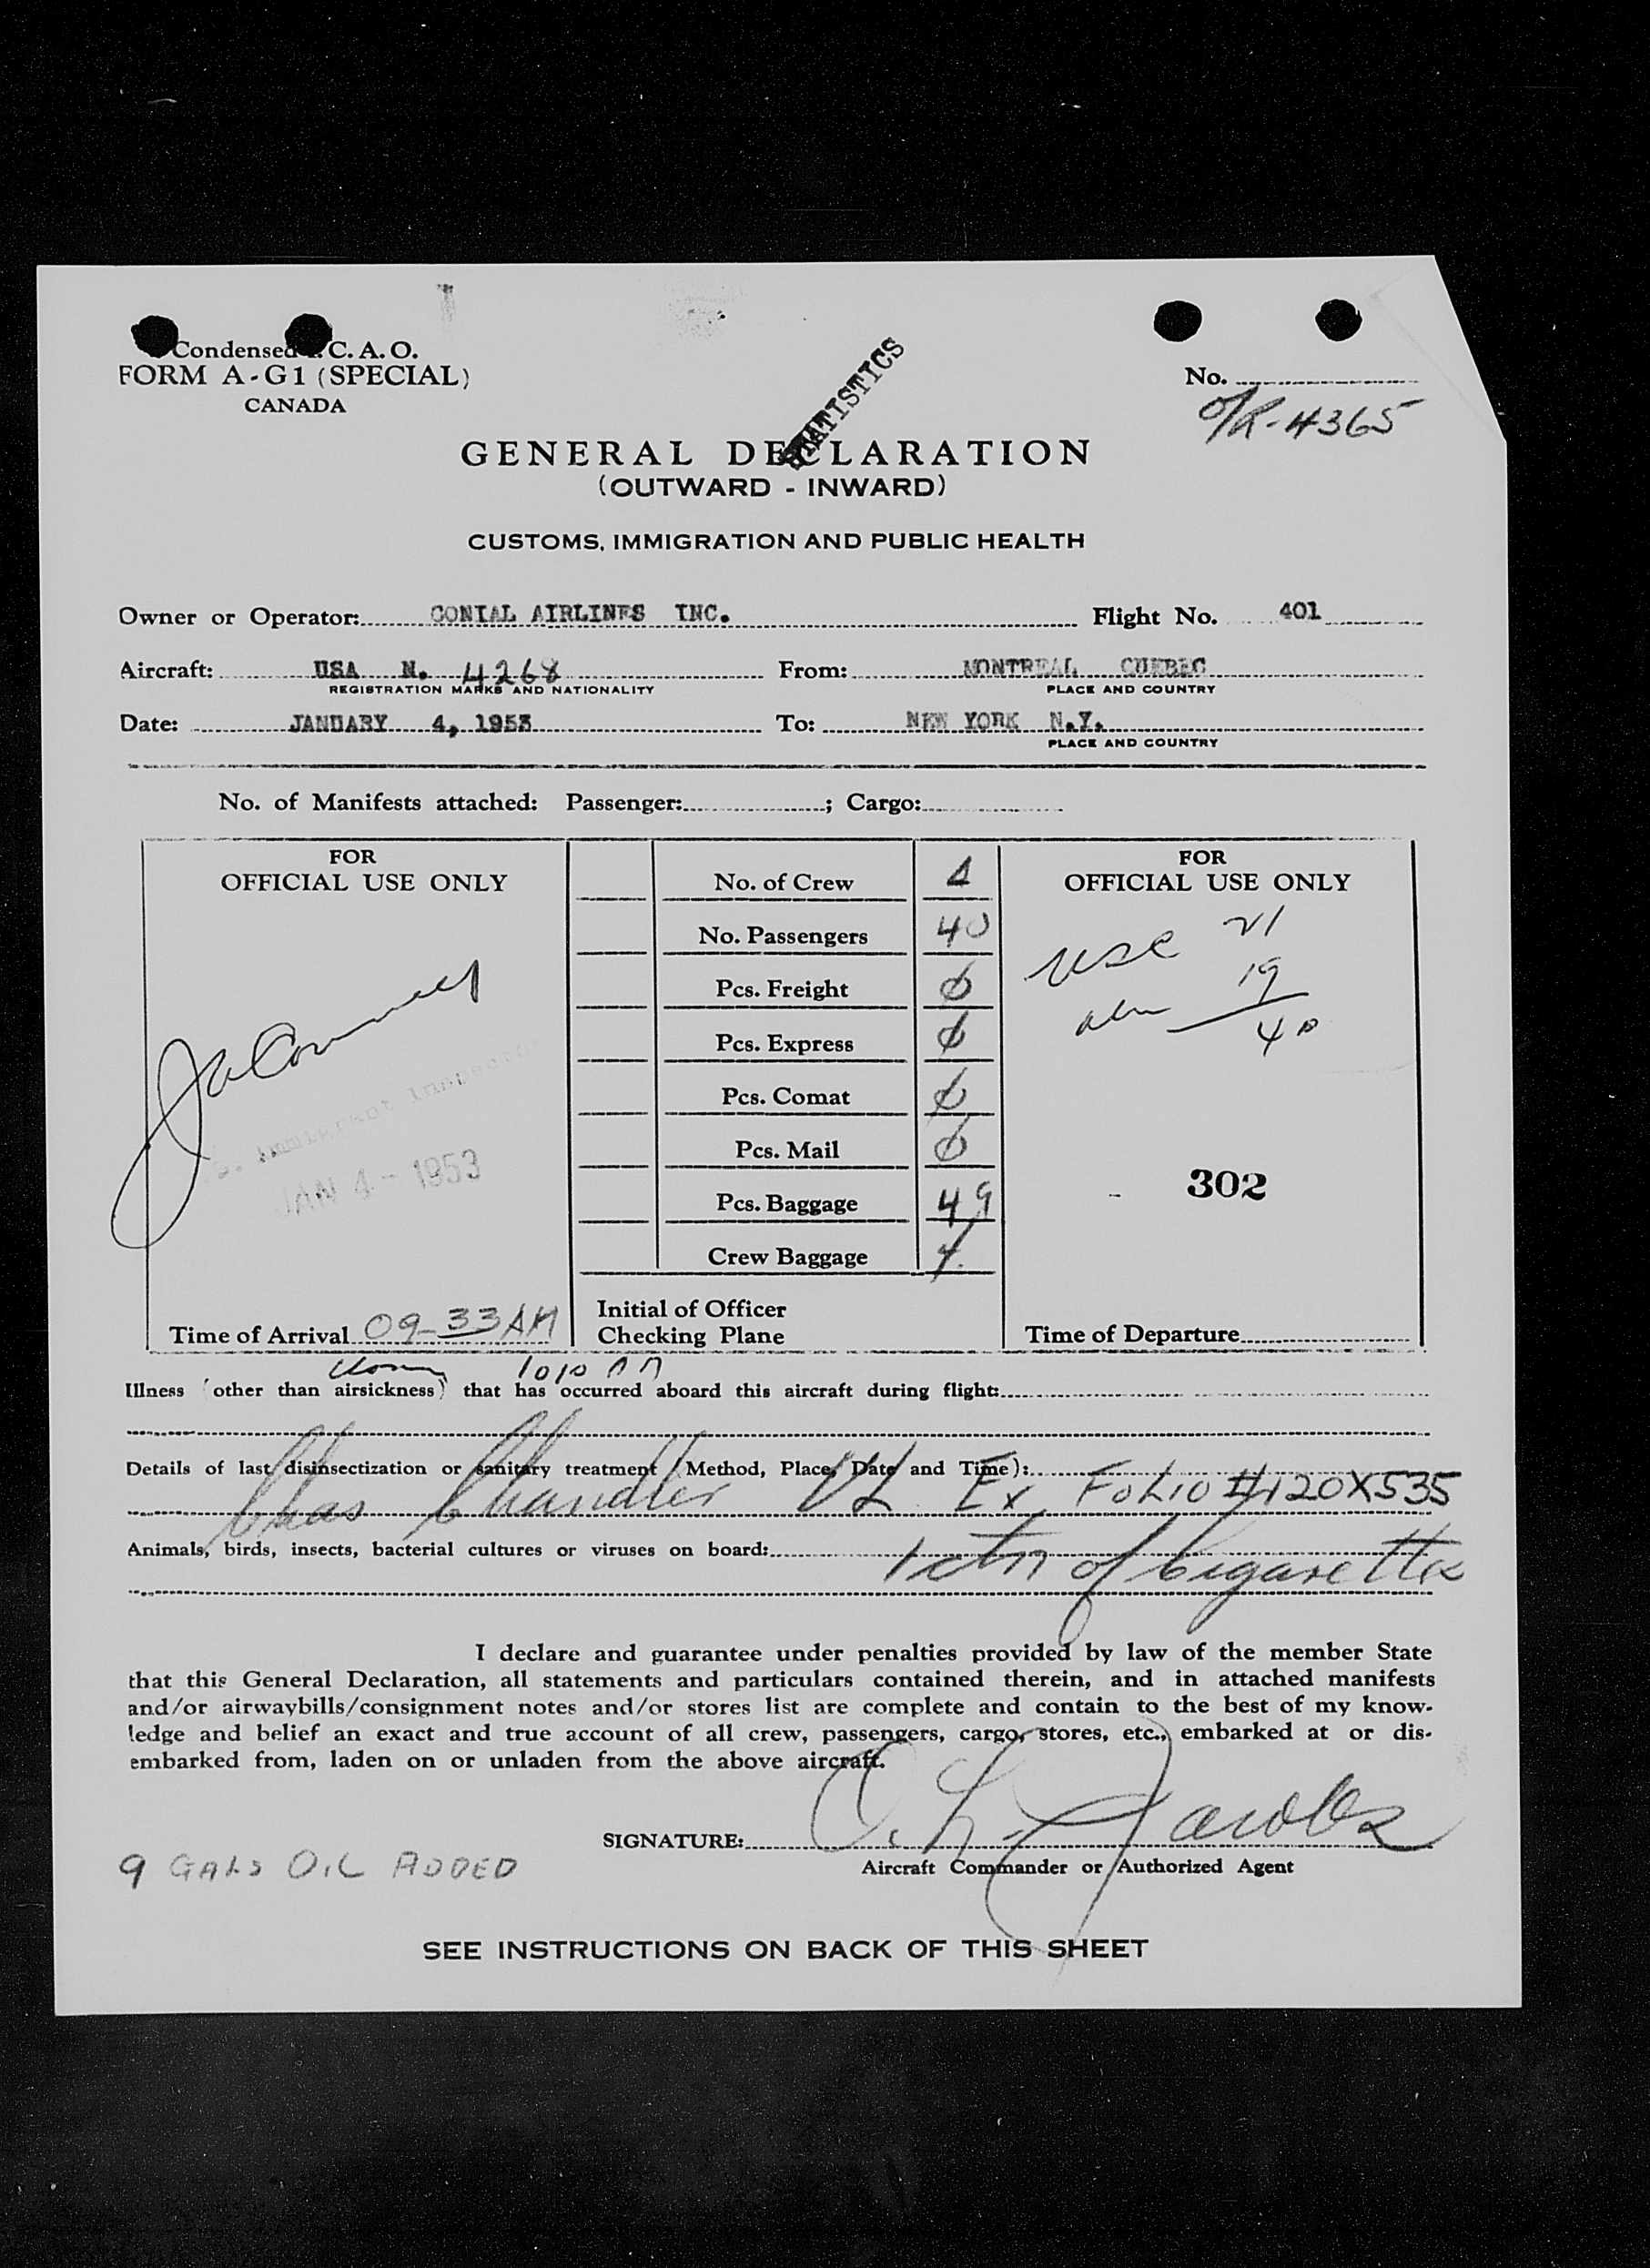 Condensed I.C.A.O.
FORM A-G1 (SPECIAL)
CANADA
No.
O/R-4365
STATISTICS
GENERAL DECLARATION
(OUTWARD - INWARD)
CUSTOMS, IMMIGRATION AND PUBLIC HEALTH
Owner or Operator: CONIAL AIRLINES INC. Flight No. 401
Aircraft: USA N. 4268 From: MONTREAL QUEBEC
REGISTRATION MARKS AND NATIONALITY PLACE AND COUNTRY
Date: JANUARY 4, 1953 To: NEW YORK N.Y.
PLACE AND COUNTRY
No. of Manifests attached: Passenger: ; Cargo:
FOR
OFFICIAL USE ONLY
JAN 4 - 1953
Time of Arrival 09-33 AM
No. of Crew 4
No. Passengers 40
Pcs. Freight 0
Pcs. Express 0
Pcs. Comat 0
Pcs. Mail 0
Pcs. Baggage 49
Crew Baggage
Initial of Officer
Checking Plane
FOR
OFFICIAL USE ONLY
USC 21
19
40
302
Time of Departure
1010 AM
Illness (other than airsickness) that has occurred aboard this aircraft during flight:
Details of last disinsectization or sanitary treatment (Method, Place, Date and Time):
Chas Chandler Ex Folio #120X535
Animals, birds, insects, bacterial cultures or viruses on board:
1 ctn of Cigarettes
I declare and guarantee under penalties provided by law of the member State
that this General Declaration, all statements and particulars contained therein, and in attached manifests
and/or airwaybills/consignment notes and/or stores list are complete and contain to the best of my know-
ledge and belief an exact and true account of all crew, passengers, cargo, stores, etc., embarked at or dis-
embarked from, laden on or unladen from the above aircraft.
SIGNATURE: C. L. Jacobs
Aircraft Commander or Authorized Agent
9 GALS OIL ADDED
SEE INSTRUCTIONS ON BACK OF THIS SHEET